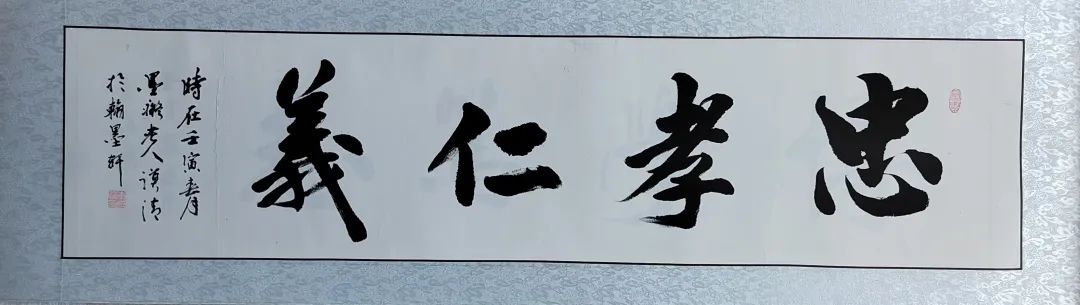 忠孝仁義
時在壬寅春月
墨癡老人漢清
於翰墨軒